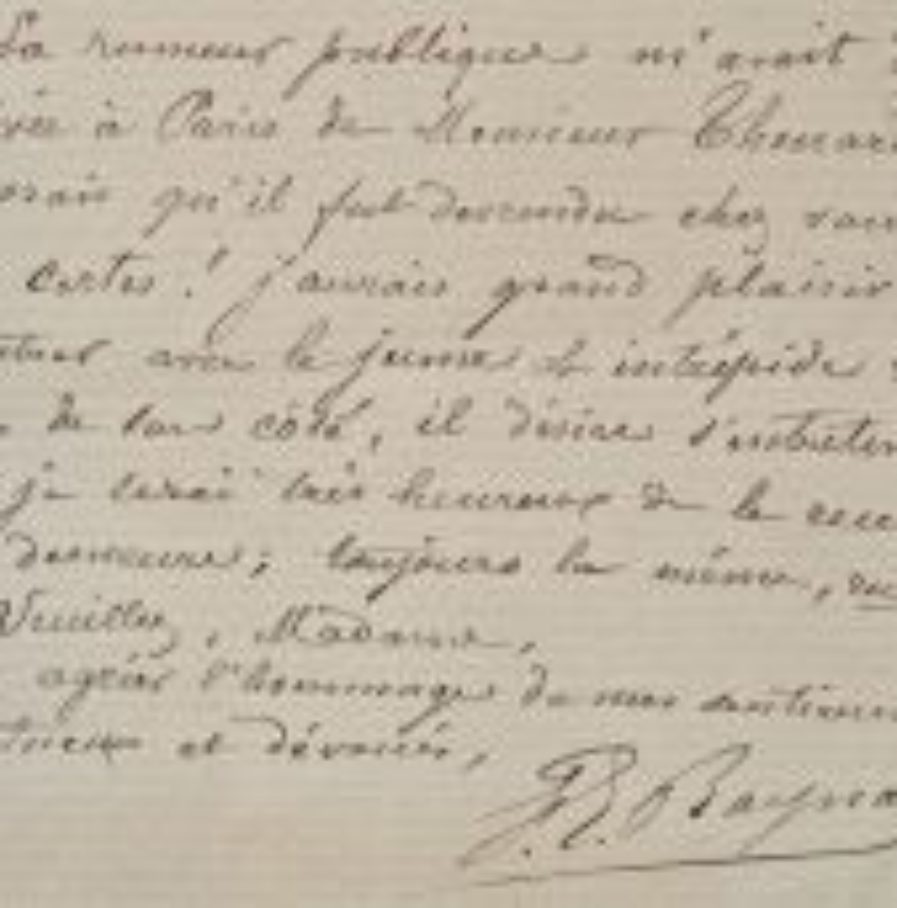 La rumeur publique m'avait
à Paris de Monsieur Thenar
qu'il fut descendu chez vou
certes! j'aurais grand plaisir
avec le jeune et intrépide
de son côté, il désire s'entreten
je serai très heureux de le rece
demeure; toujours la même,
Veuillez, Madame,
agréer l'hommage de mes sentimen
et dévoués,